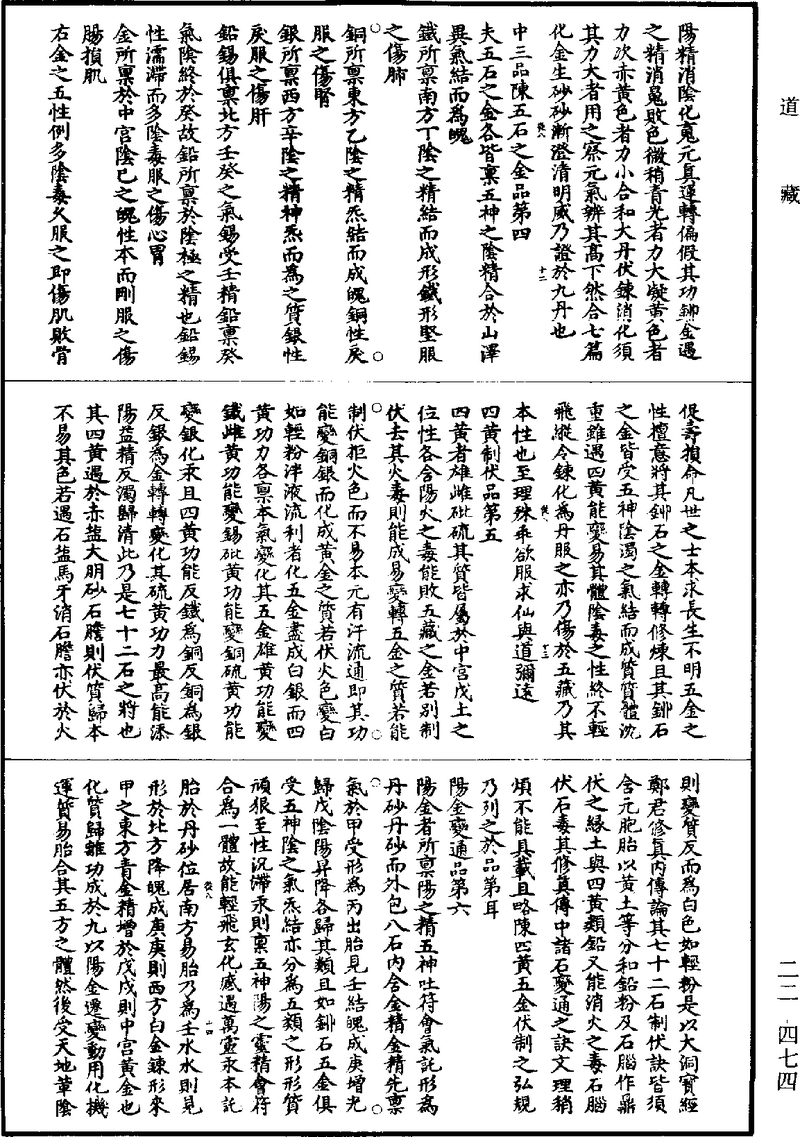 道藏
陽精消陰化䰟元真運轉偏假其功鉚金遇
之精消䰟敗色微稍青光者力大凝黃色者
力次赤黃色者力小合和大丹伏鍊消化須
其力大者用之察元氣辨其高下然合七篇
化金生砂砂漸澄清明威乃證於九丹也
中三品陳五石之金品第四
夫五石之金各皆稟五神之陰精合於山澤
異氣結而為魄
鐵所稟南方丁陰之精結而成形鐵形堅服
之傷肺
銅所稟東方乙陰之精炁結而成魄銅性戾
服之傷腎
銀所稟西方辛陰之精神炁而為之質銀性
戾服之傷肝
鉛錫俱稟北方壬癸之氣錫受壬精鉛稟癸
氣陰終於癸故鉛所稟於陰極之精也鉛錫
性濡滯而多陰毒服之傷心胃
金所稟於中宮陰己之魄性本而剛服之傷
腸損肌
右金之五性例多陰毒久服之即傷肌敗骨
促壽損命凡世之士本求長生不明五金之
性擅意將其鉚石之金轉轉修煉且其鉚石
之金皆受五神陰濁之氣結而成質質體沈
重雖遇四黃能變易其體陰毒之性終不輕
飛縱令鍊化為丹服之亦乃傷於五藏乃其
本性也至理殊乖欲服求仙與道彌遠
四黃制伏品第五
四黃者雄雌砒硫其質皆屬於中宮戊土之
位性各含陽火之毒能敗五藏之金若別制
伏去其火毒則能成易變轉五金之質若能
制伏拒火色而不易本元有汗流通即其功
能變銅銀而化成黃金之質若伏火色變白
如輕粉泮液流利者化五金盡成白銀而四
黃功力各稟本氣變化其五金雄黃功能變
鐵雌黃功能變錫砒黃功能變銅硫黃功能
變銀化汞且四黃功能反鐵為銅反銅為銀
反銀為金轉轉變化其硫黃功力最高能添
陽益精反濁歸清此乃是七十二石之將也
其四黃遇於赤鹽大明砂石膽則伏質歸本
不易其色若遇石鹽馬牙消石膽亦伏於火
則變質反而為白色如輕粉是以大洞寶經
鄭君修真內傳論其七十二石制伏訣皆須
含元胞胎以黃土等分和鉛粉及石腦作鼎
伏之緣土與四黃類鉛又能消火之毒石腦
伏石毒其修真傳中諸石變通之訣文理稍
煩不能具載且略陳四黃五金伏制之弘規
乃列之於品第耳
陽金變通品第六
陽金者所稟陽之精五神吐符會氣託形為
丹砂丹砂而外包八石內含金精金精先稟
氣於甲受形為丙出胎見壬結魄成庚增光
歸戊陰陽昇降各歸其類且如鉚石五金俱
受五神陰之氣炁結亦分為五類之形形質
頑狠至性沉滯汞則稟五神陽之靈精會符
合為一體故能輕飛玄化感遇萬靈汞本託
胎於丹砂位居南方易胎乃為壬水水則見
形於北方降魄成庚庚則西方白金鍊形來
甲之東方青金精增於戊戊則中宮黃金也
化質歸離功成於九以陽金遷變動用化機
運質易胎合其五方之體然後受天地革陰
二二·四七四